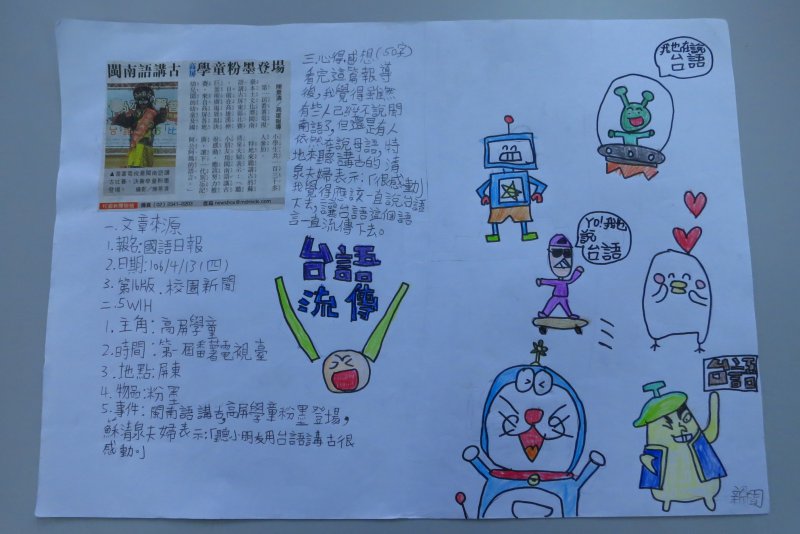 閩南語講古 高屏學童粉墨登場
一.文章來源
1.報名:國語日報
2.日期:106/4/13(四)
3.第16版.校園新聞
二.5W1H
1.主角:高屏學童
2.時間:第一屆番薯電視臺
3.地點:屏東
4.物品:粉墨
5.事件:閩南語講古,高屏學童粉墨登場,
蘇清泉夫婦表示:「聽小朋友用台語講古很
感動。」
三.心得感想(150字)
看完這篇報導
後,我覺得雖然
有些人已經不說閩
南語了,但還是有人
依然在說母語,特
地來聽講古的清
泉夫婦表示:「很感動」
我覺得應該一直說台語
下去,讓台語這個語
言一直流傳下去。
台語
流傳
我也在說
台語
Yo!我也
說
台語
台語
新聞